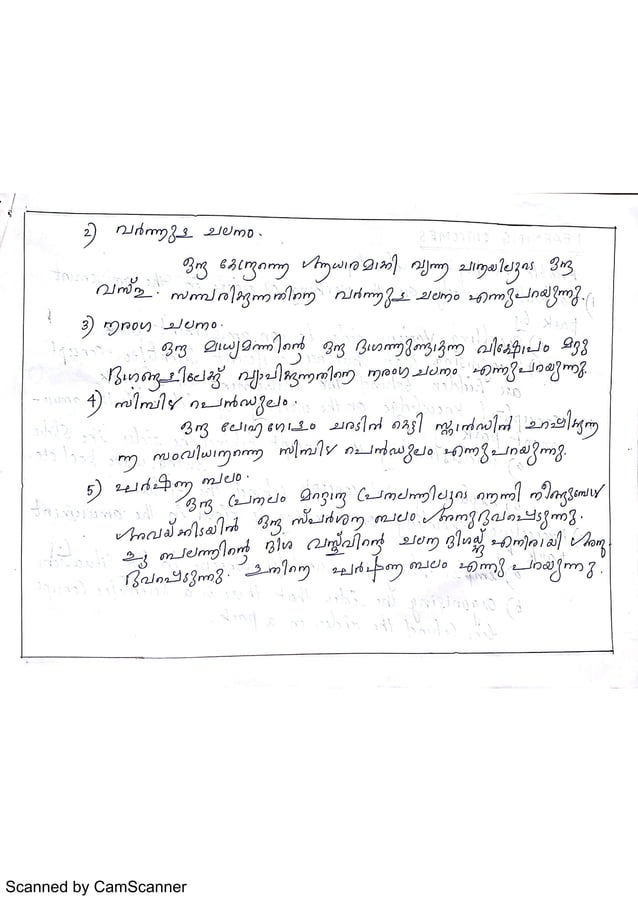 2) വർത്തുള ചലനം.
ഒരു കേന്ദ്രത്തെ ആധാരമാക്കി വൃത്ത പാതയിലൂടെ ഒരു
വസ്തു സഞ്ചരിക്കുന്നതിനെ വർത്തുള ചലനം എന്നുപറയുന്നു.
3) തരംഗ ചലനം.
ഒരു മാധ്യമത്തിന്റെ ഒരു ഭാഗത്തുണ്ടാകുന്ന വിക്ഷോഭം മറ്റു
ഭാഗങ്ങളിലേക്ക് വ്യാപിക്കുന്നതിനെ തരംഗ ചലനം എന്നുപറയുന്നു.
4) സിമ്പിൾ പെൻഡുലം.
ഒരു ലോഹഗോളം ചരടിൽ കെട്ടി സ്റ്റാൻഡിൽ ഉറപ്പിക്കുന്ന
ന്ന സംവിധാനത്തെ സിമ്പിൾ പെൻഡുലം എന്നുപറയുന്നു.
5) ഘർഷണ ബലം.
ഒരു പ്രതലം മറ്റൊരു പ്രതലത്തിലൂടെ തെന്നി നീങ്ങുമ്പോൾ
അവയ്ക്കിടയിൽ ഒരു സ്പർശന ബലം അനുഭവപ്പെടുന്നു.
ഈ ബലത്തിന്റെ ദിശ വസ്തുവിന്റെ ചലന ദിശയ്ക്ക് എതിരായി അനു
ഭവപ്പെടുന്നു. ഇതിനെ ഘർഷണ ബലം എന്നു പറയുന്നു.
Scanned by CamScanner